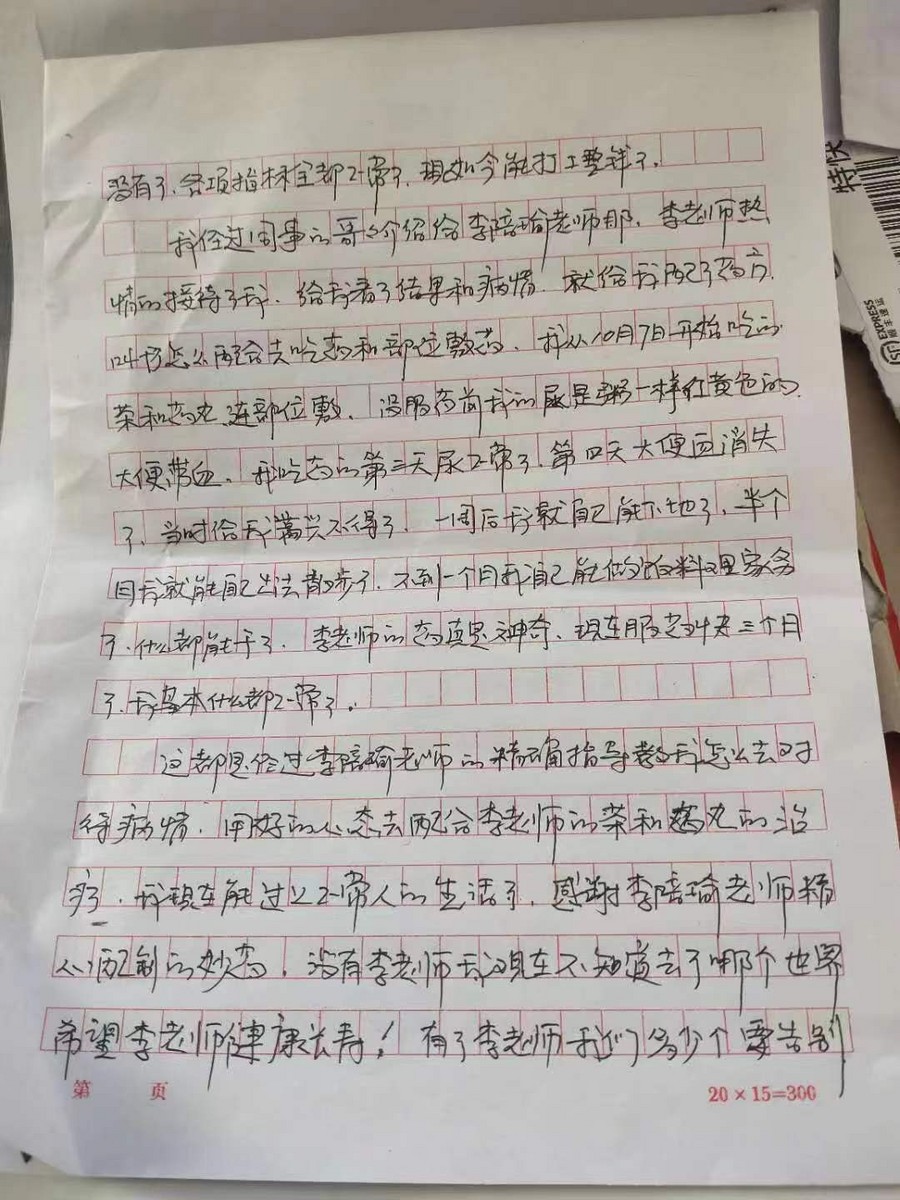 没有了、各项指标全都正常了、现如今能打工整钱了、
我经过同事的哥哥介绍给李陪瑜老师那、李老师热
情的接待了我、给我看了结果和病情、就给我配了药方、
叫我怎么配合去吃药和部位敷药、我从10月7日开始吃的
茶和药丸连部位敷、没服药前我的尿是粥一样红黄色的、
大便带血、我吃药的第三天尿正常了、第四天大便血消失
了、当时给我高兴不得了、一周后我就自己能下地了、半个
月我就能自己出去散步了、不到一个月我自己能做饭料理家务
了、什么都能干了、李老师的药真是神奇、现在服药快三个月
了、我基本什么都正常了。
这都是经过李陪瑜老师的精确指导教我怎么去对
待病情、用好的心态去配合李老师的茶和药丸的治
疗、我现在能过上正常人的生活了、感谢李陪瑜老师精
心配制的妙药、没有李老师我现在不知道去了哪个世界
希望李老师健康长寿！有了李老师我们多少个要告别
第 页
20×15=300
特快
SF EXPRESS